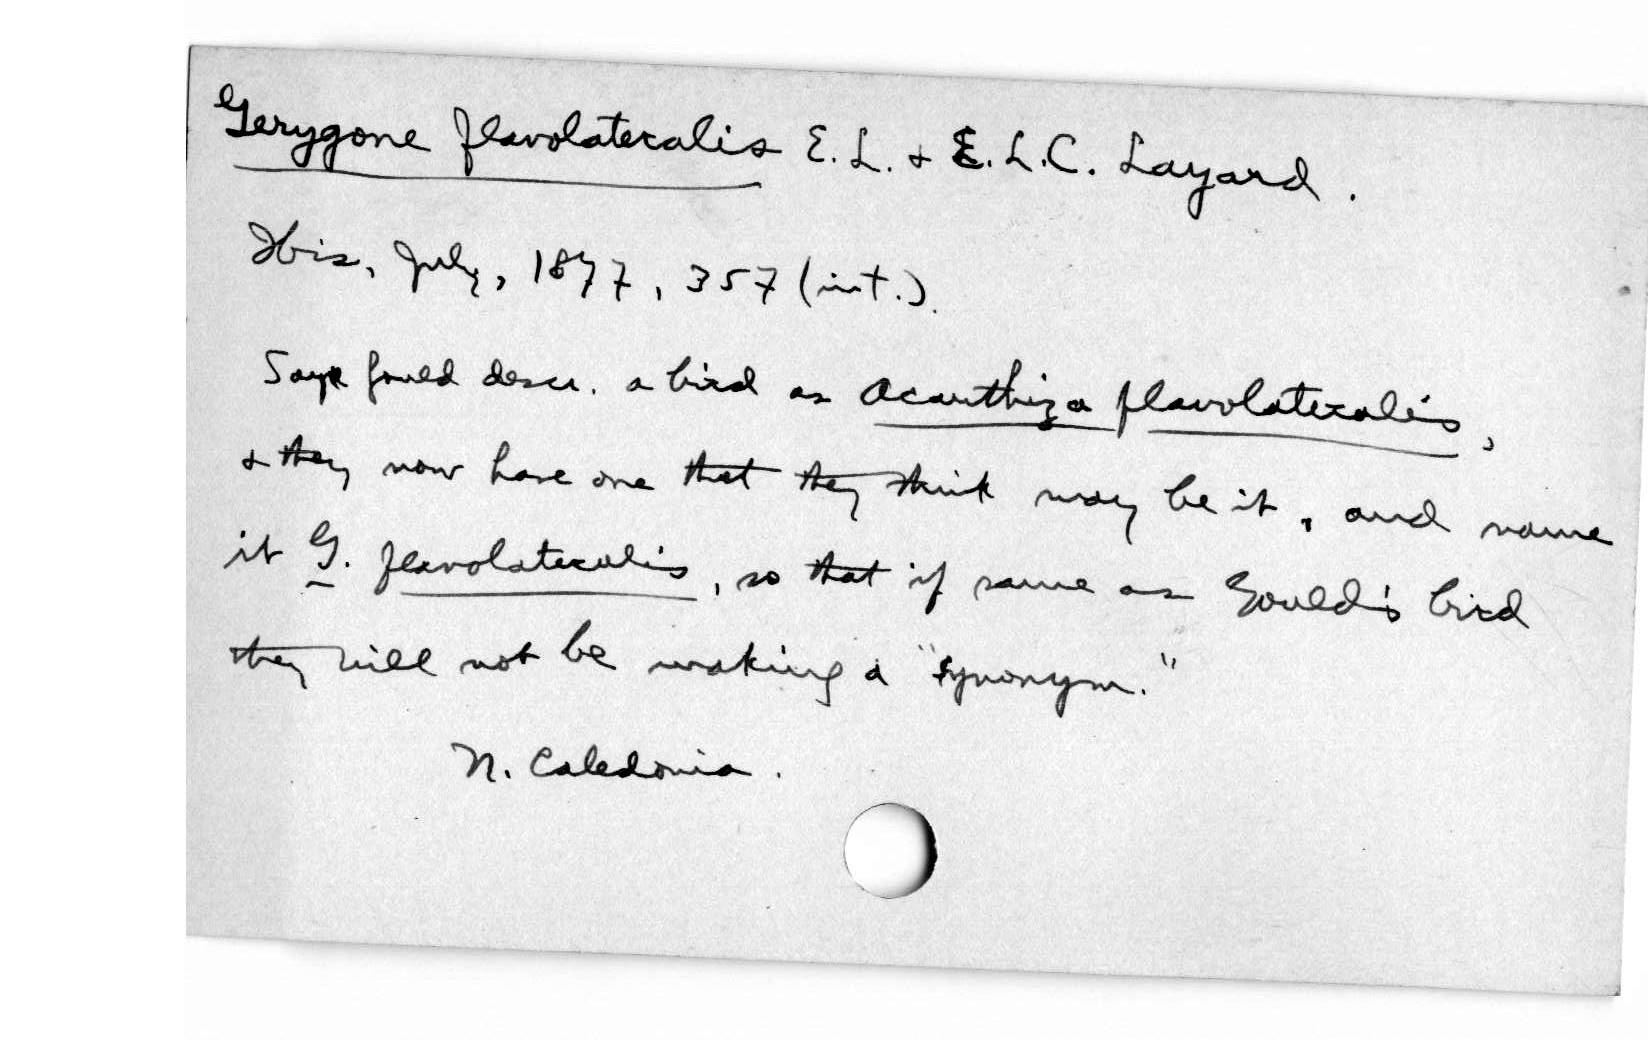 Gerygone flavolateralis E. L. & E. L. C. Layard.
Ibis, July, 1877, 357 (int.).
Says Gould descr. a bird as Acanthiza flavolateralis,
& they now have one that they think may be it, and name
it G. flavolateralis, so that if same as Gould's bird
they will not be making a "synonym."
N. Caledonia.